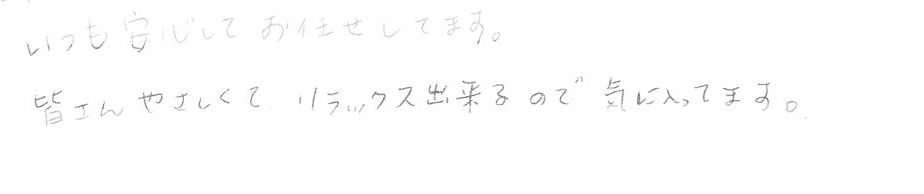 いつも安心してお任せしてます。
皆さんやさしくてリラックス出来るので気に入ってます。